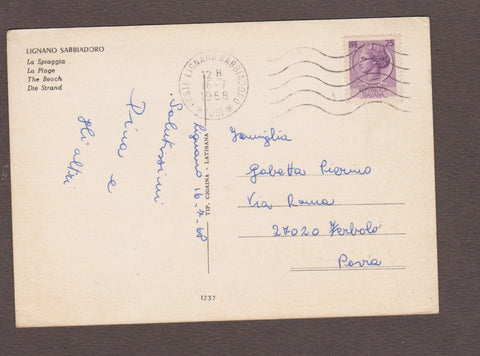 LIGNANO SABBIADORO
La Spiaggia
La Plage
The Beach
Die Strand
POSTE LIGNANO SABBIADORO
12 H
16-7
1968
LIRE 25
Lignano 16-7-68
Salutissimi
Pina e
gli altri
TIP. CIGAINA - LATISANA
Famiglia
Gabetta Pierino
Via Roma
27020 Zerbolò
Pavia
1237